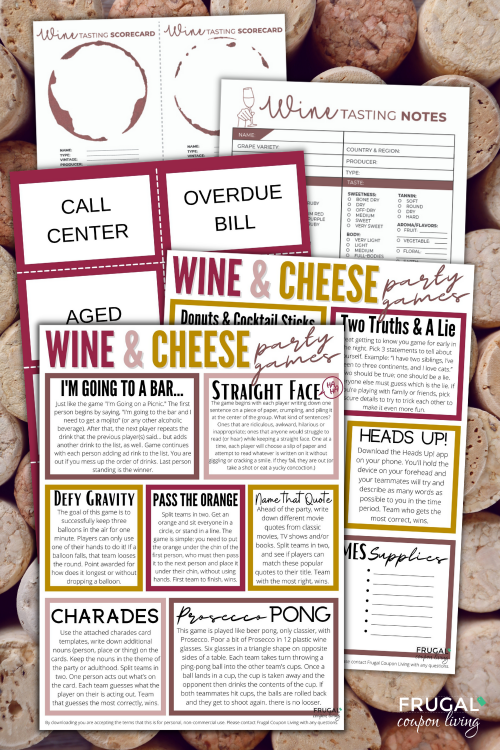 Wine TASTING SCORECARD
NAME:
TYPE:
VINTAGE:
PRODUCER:
Wine TASTING SCORECARD
NAME:
TYPE:
VINTAGE:
Wine TASTING NOTES
NAME
GRAPE VARIETY
COUNTRY & REGION:
PRODUCER
TYPE:
TASTE
SWEETNESS:
BONE DRY
DRY
OFF-DRY
MEDIUM
SWEET
VERY SWEET
BODY:
VERY LIGHT
LIGHT
MEDIUM
FULL-BODIED
TANNIN:
SOFT
ROUND
DRY
HARD
AROMA/FLAVORS:
FRUIT
VEGETABLE
FLORAL
CALL
CENTER
OVERDUE
BILL
AGED
WINE & CHEESE party
games
Donuts & Cocktail Sticks
Two Truths & A Lie
HEADS UP!
Download the Heads Up! app
on your phone. You'll hold the
device on your forehead and
your teammates will try and
describe as many words as
possible to you in the time
period. Team who gets the
most correct, wins.
MES Supplies
WINE & CHEESE party
games
I'M GOING TO A BAR...
Just like the game "I'm Going on a Picnic." The first
person begins by saying, "I'm going to the bar and I
need to get a mojito" (or any other alcoholic
beverage). After that, the next player repeats the
drink that the previous player(s) said... but adds
another drink to the list, as well. Game continues
with each person adding a drink to the list. You are
out if you mess up the order of drinks. Last person
standing is the winner.
STRAIGHT FACE
The game begins with each player writing down one
sentence on a piece of paper, crumpling, and piling it
at the center of the group. What kind of sentences?
Ones that are ridiculous, awkward, hilarious or
inappropriate; ones that anyone would struggle to
read (or hear) while keeping a straight face. One at a
time, each player will choose a slip of paper and
attempt to read whatever is written on it without
giggling or cracking a smile. If they fail, they are out (or
take a shot or eat a yucky concoction.)
DEFY GRAVITY
The goal of this game is to
successfully keep three
balloons in the air for one
minute. Players can only use
one of their hands to do it! If a
balloon falls, that team looses
the round. Point awarded for
how does it longest or without
dropping a balloon.
PASS THE ORANGE
Split teams in two. Get an
orange and sit everyone in a
circle, or stand in a line. The
game is simple: you need to put
the orange under the chin of the
first person, who must then pass
it to the next person and place it
under their chin, without using
hands. First team to finish, wins.
Name that Quote
Ahead of the party, write
down different movie
quotes from classic
movies, TV shows and/or
books. Split teams in two,
and see if players can
match these popular
quotes to their title. Team
with the most right, wins.
CHARADES
Use the attached charades card
templates, write down additional
nouns (person, place or thing) on the
cards. Keep the nouns in the theme of
the party or adulthood. Split teams in
two. One person acts out what's on
the card. Each team guesses what the
player on their is acting out. Team
that guesses the most correctly, wins.
Prosecco PONG
This game is played like beer pong, only classier, with
Prosecco. Poor a bit of Prosecco in 12 plastic wine
glasses. Six glasses in a triangle shape on opposite
sides of a table. Each team takes turn throwing a
ping-pong ball into the other team's cups. Once a
ball lands in a cup, the cup is taken away and the
opponent then drinks the contents of the cup. If
both teammates hit cups, the balls are rolled back
and they get to shoot again, there is no looser.
By downloading you are accepting the terms that this is for personal, non commercial use. Please contact Frugal Coupon Living with any questions.
FRUGAL
coupon living